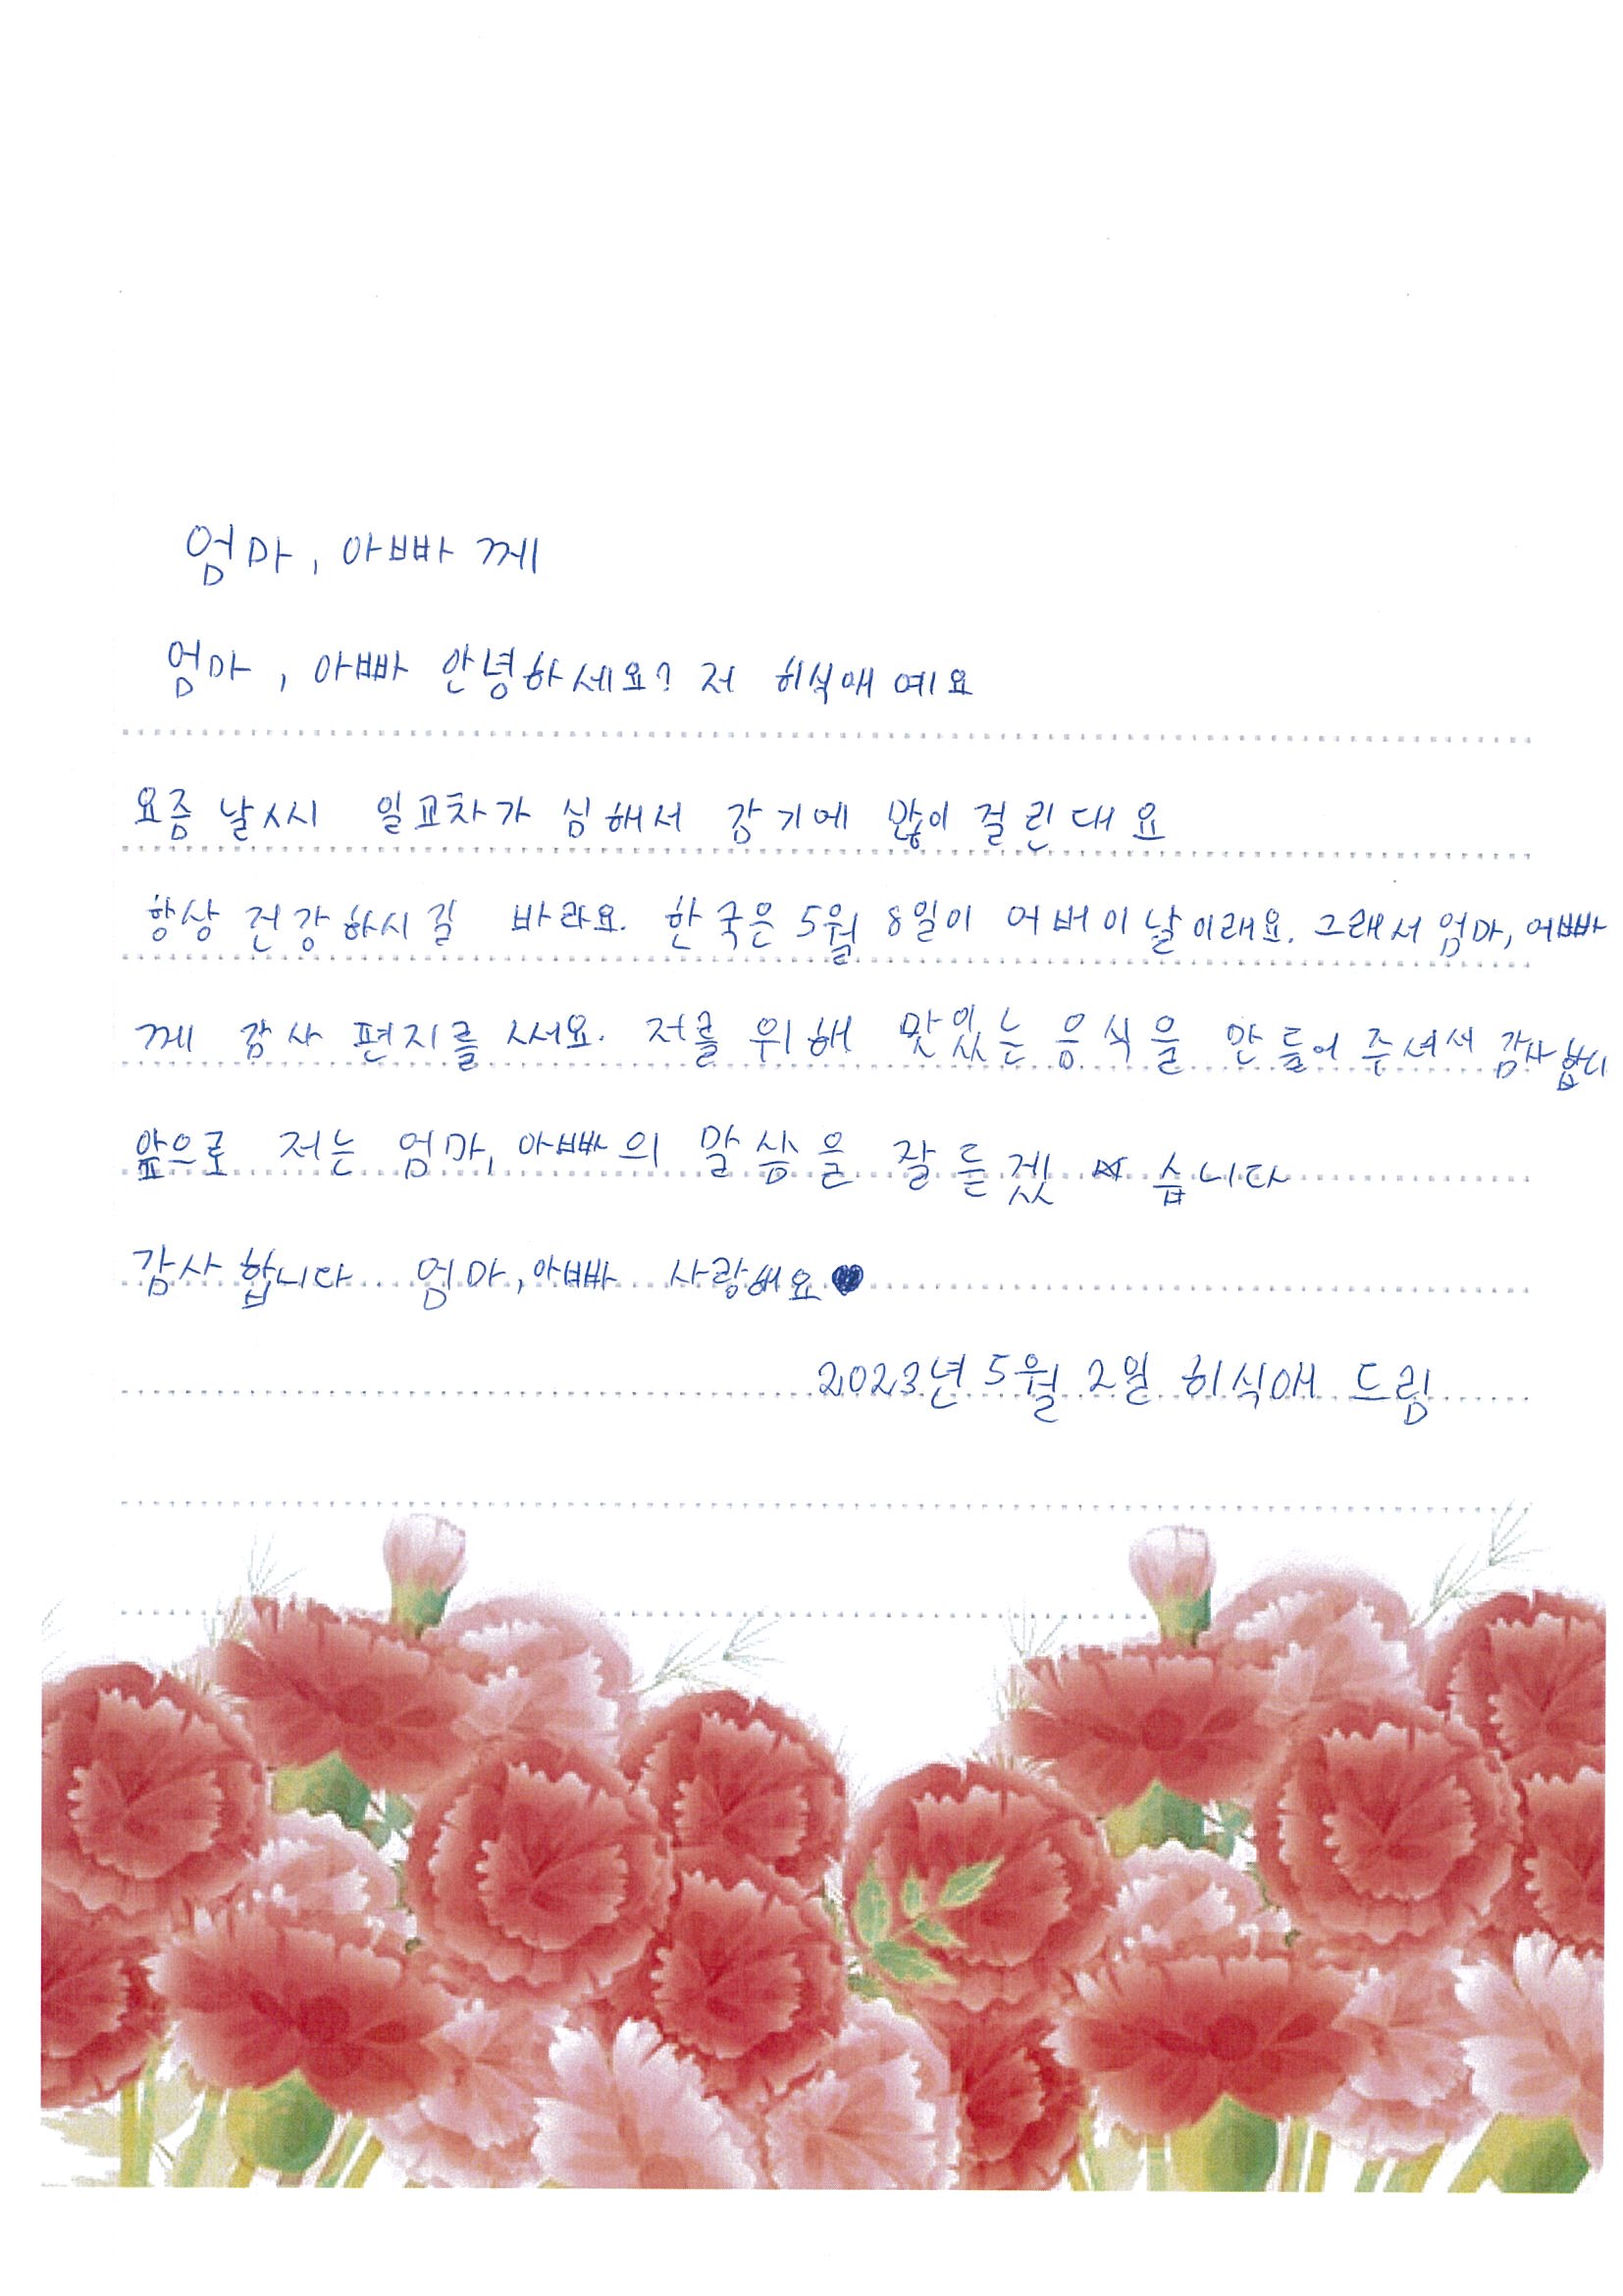 엄마, 아빠께
엄마, 아빠 안녕하세요? 저 히식애예요
요즘 날씨 일교차가 심해서 감기에 많이 걸린대요
항상 건강하시길 바라요. 한국은 5월 8일이 어버이날이래요. 그래서 엄마, 어빠
께 감사 편지를 써요. 저를 위해 맛있는 음식을 만들어 주셔서 감사합니
앞으로 저는 엄마, 아빠의 말씀을 잘 듣겠습니다
감사합니다 엄마, 아빠 사랑해요♥
2023년 5월 2일 히식애 드림